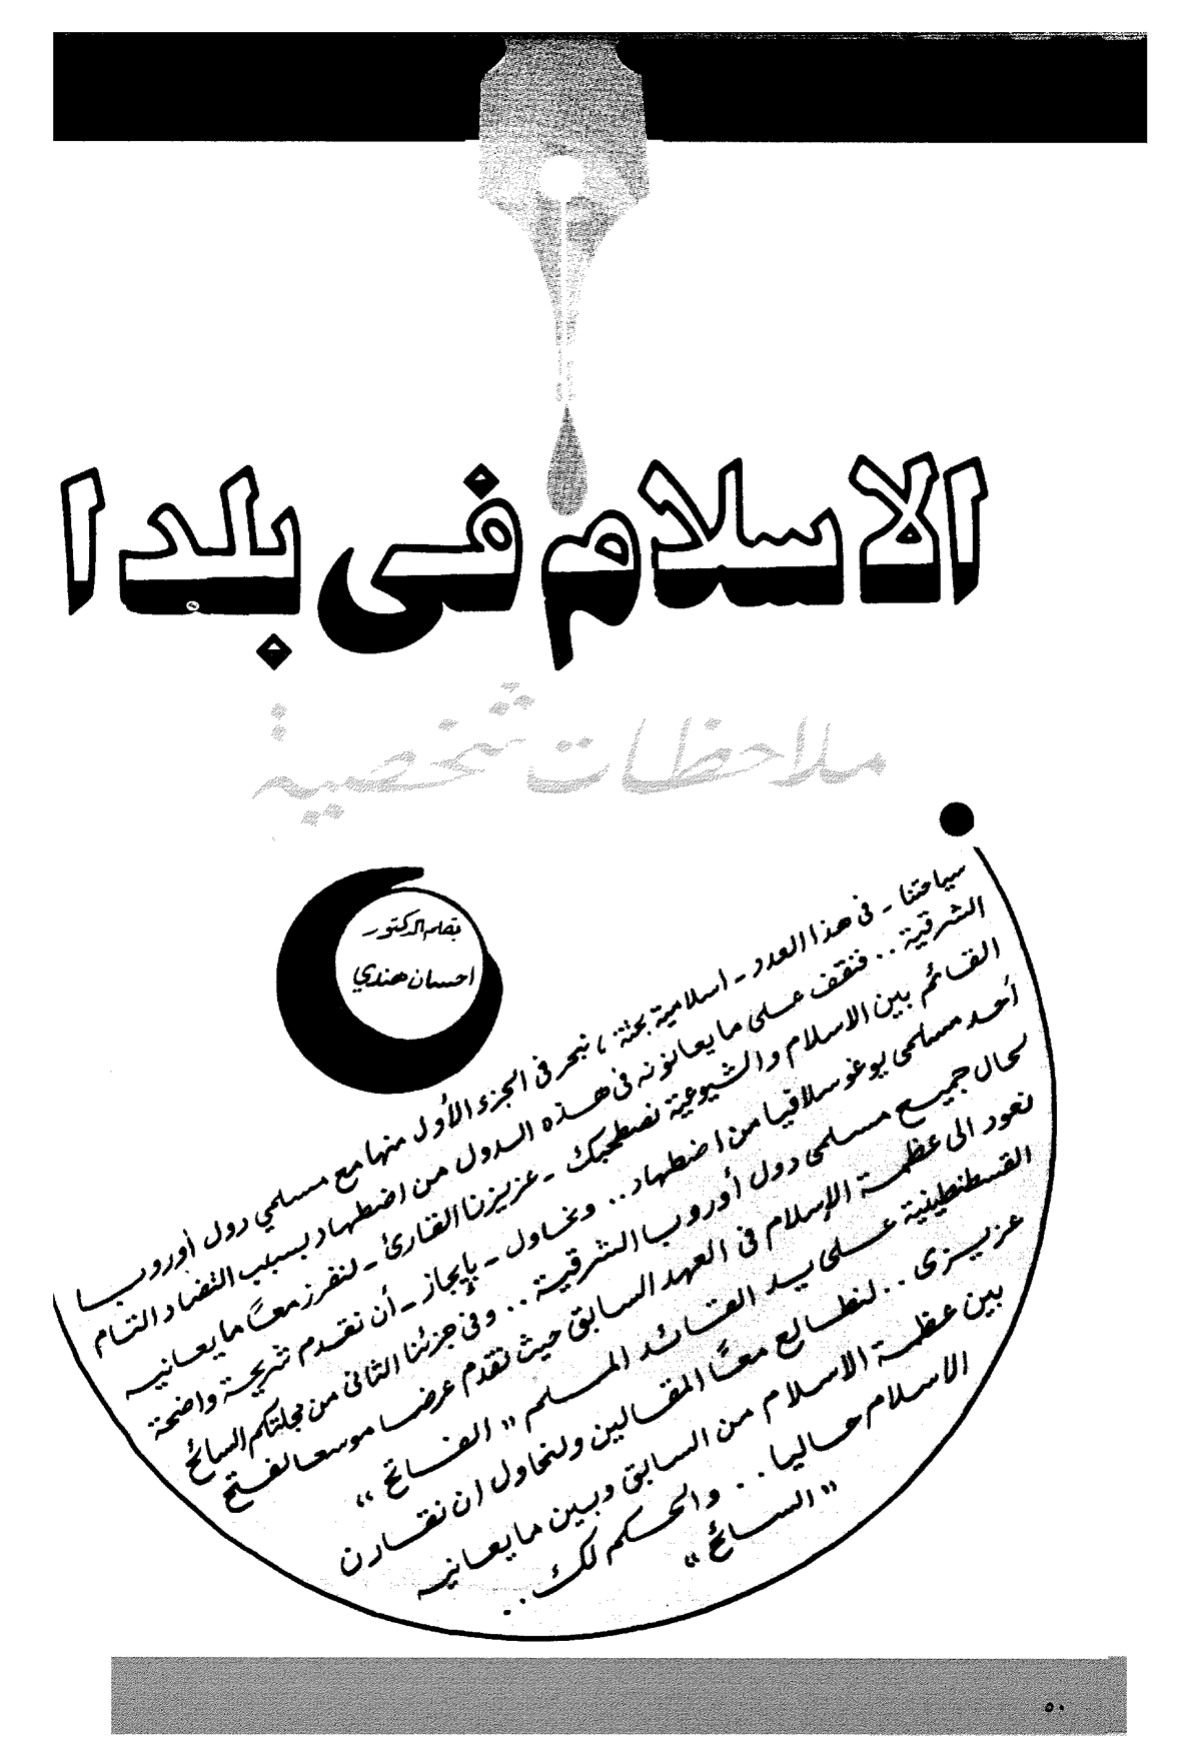 الاسلام فى بلدا
ملاحظات شخصية
بقلم الدكتور
احسان هندي
سياحتنا - فى هذا العدد - اسلامية بحتة ، نبحر فى الجزء الأول منها مع مسلمي دول أوروبا
الشرقية .. فنقف على ما يعانونه فى هذه الدول من اضطهاد بسبب التضاد التام
القائم بين الاسلام والشيوعية نصطحبك - عزيزنا القارئ - لنفرز معاً ما يعانيه
أحد مسلمى يوغوسلافيا من اضطهاد .. ونحاول - بإيجاز - أن نقدم شريحة واضحة
لحال جميع مسلمى دول أوروبا الشرقية .. وفى جزئنا الثانى من مجلتكم السائح
نعود الى عظمة الإسلام فى العهد السابق حيث نقدم عرضا موسعا لفتح
القسطنطينية على يد القائد المسلم " الفاتح "
عزيزى .. لنطالع معاً المقالين ولنحاول ان نقارن
بين عظمة الاسلام من السابق وبين ما يعانيه
الاسلام حاليا .. والحكم لك ..
" السائح "
٥٠